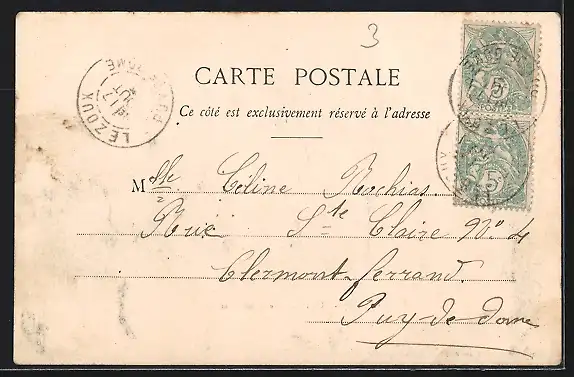 3
CARTE POSTALE
Ce côté est exclusivement réservé à l'adresse
LEZOUX
PUY-DE-DOME
5
5
Mselle Céline Rochias
Rue Ste Claire No 4
Clermont-ferrand.
Puy-de-dome